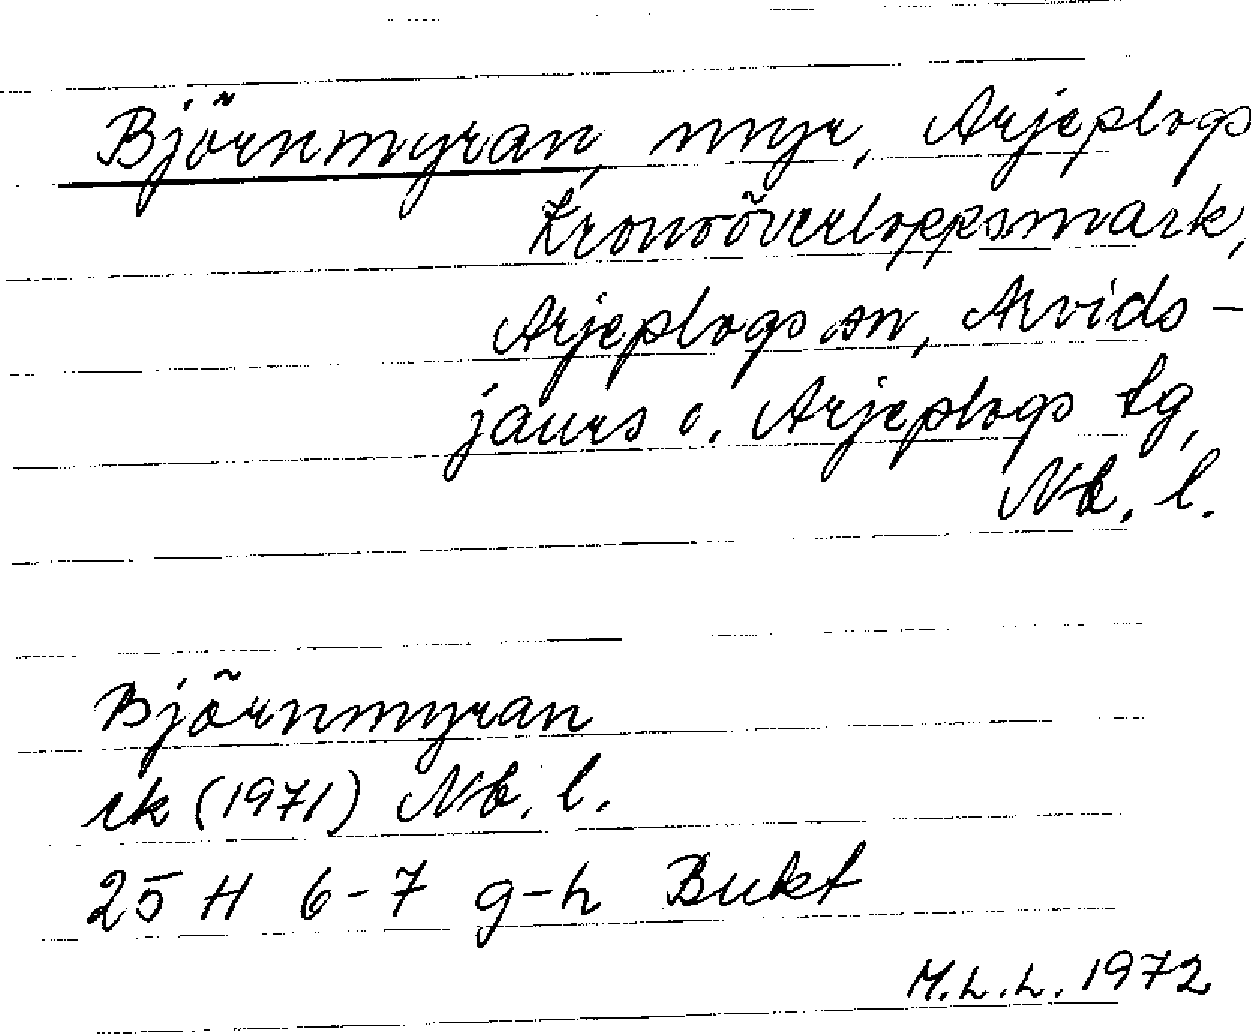 Björnmyran, myr, Arjeplogs
Kronoöverloppsmark,
Arjeplogs sn, Arvids-
jaurs o. Arjeplogs tg,
Nb. l.
Björnmyran
rk (1971) Nb. l.
25 H 6-7 g-h Bukt
M.L.L. 1972